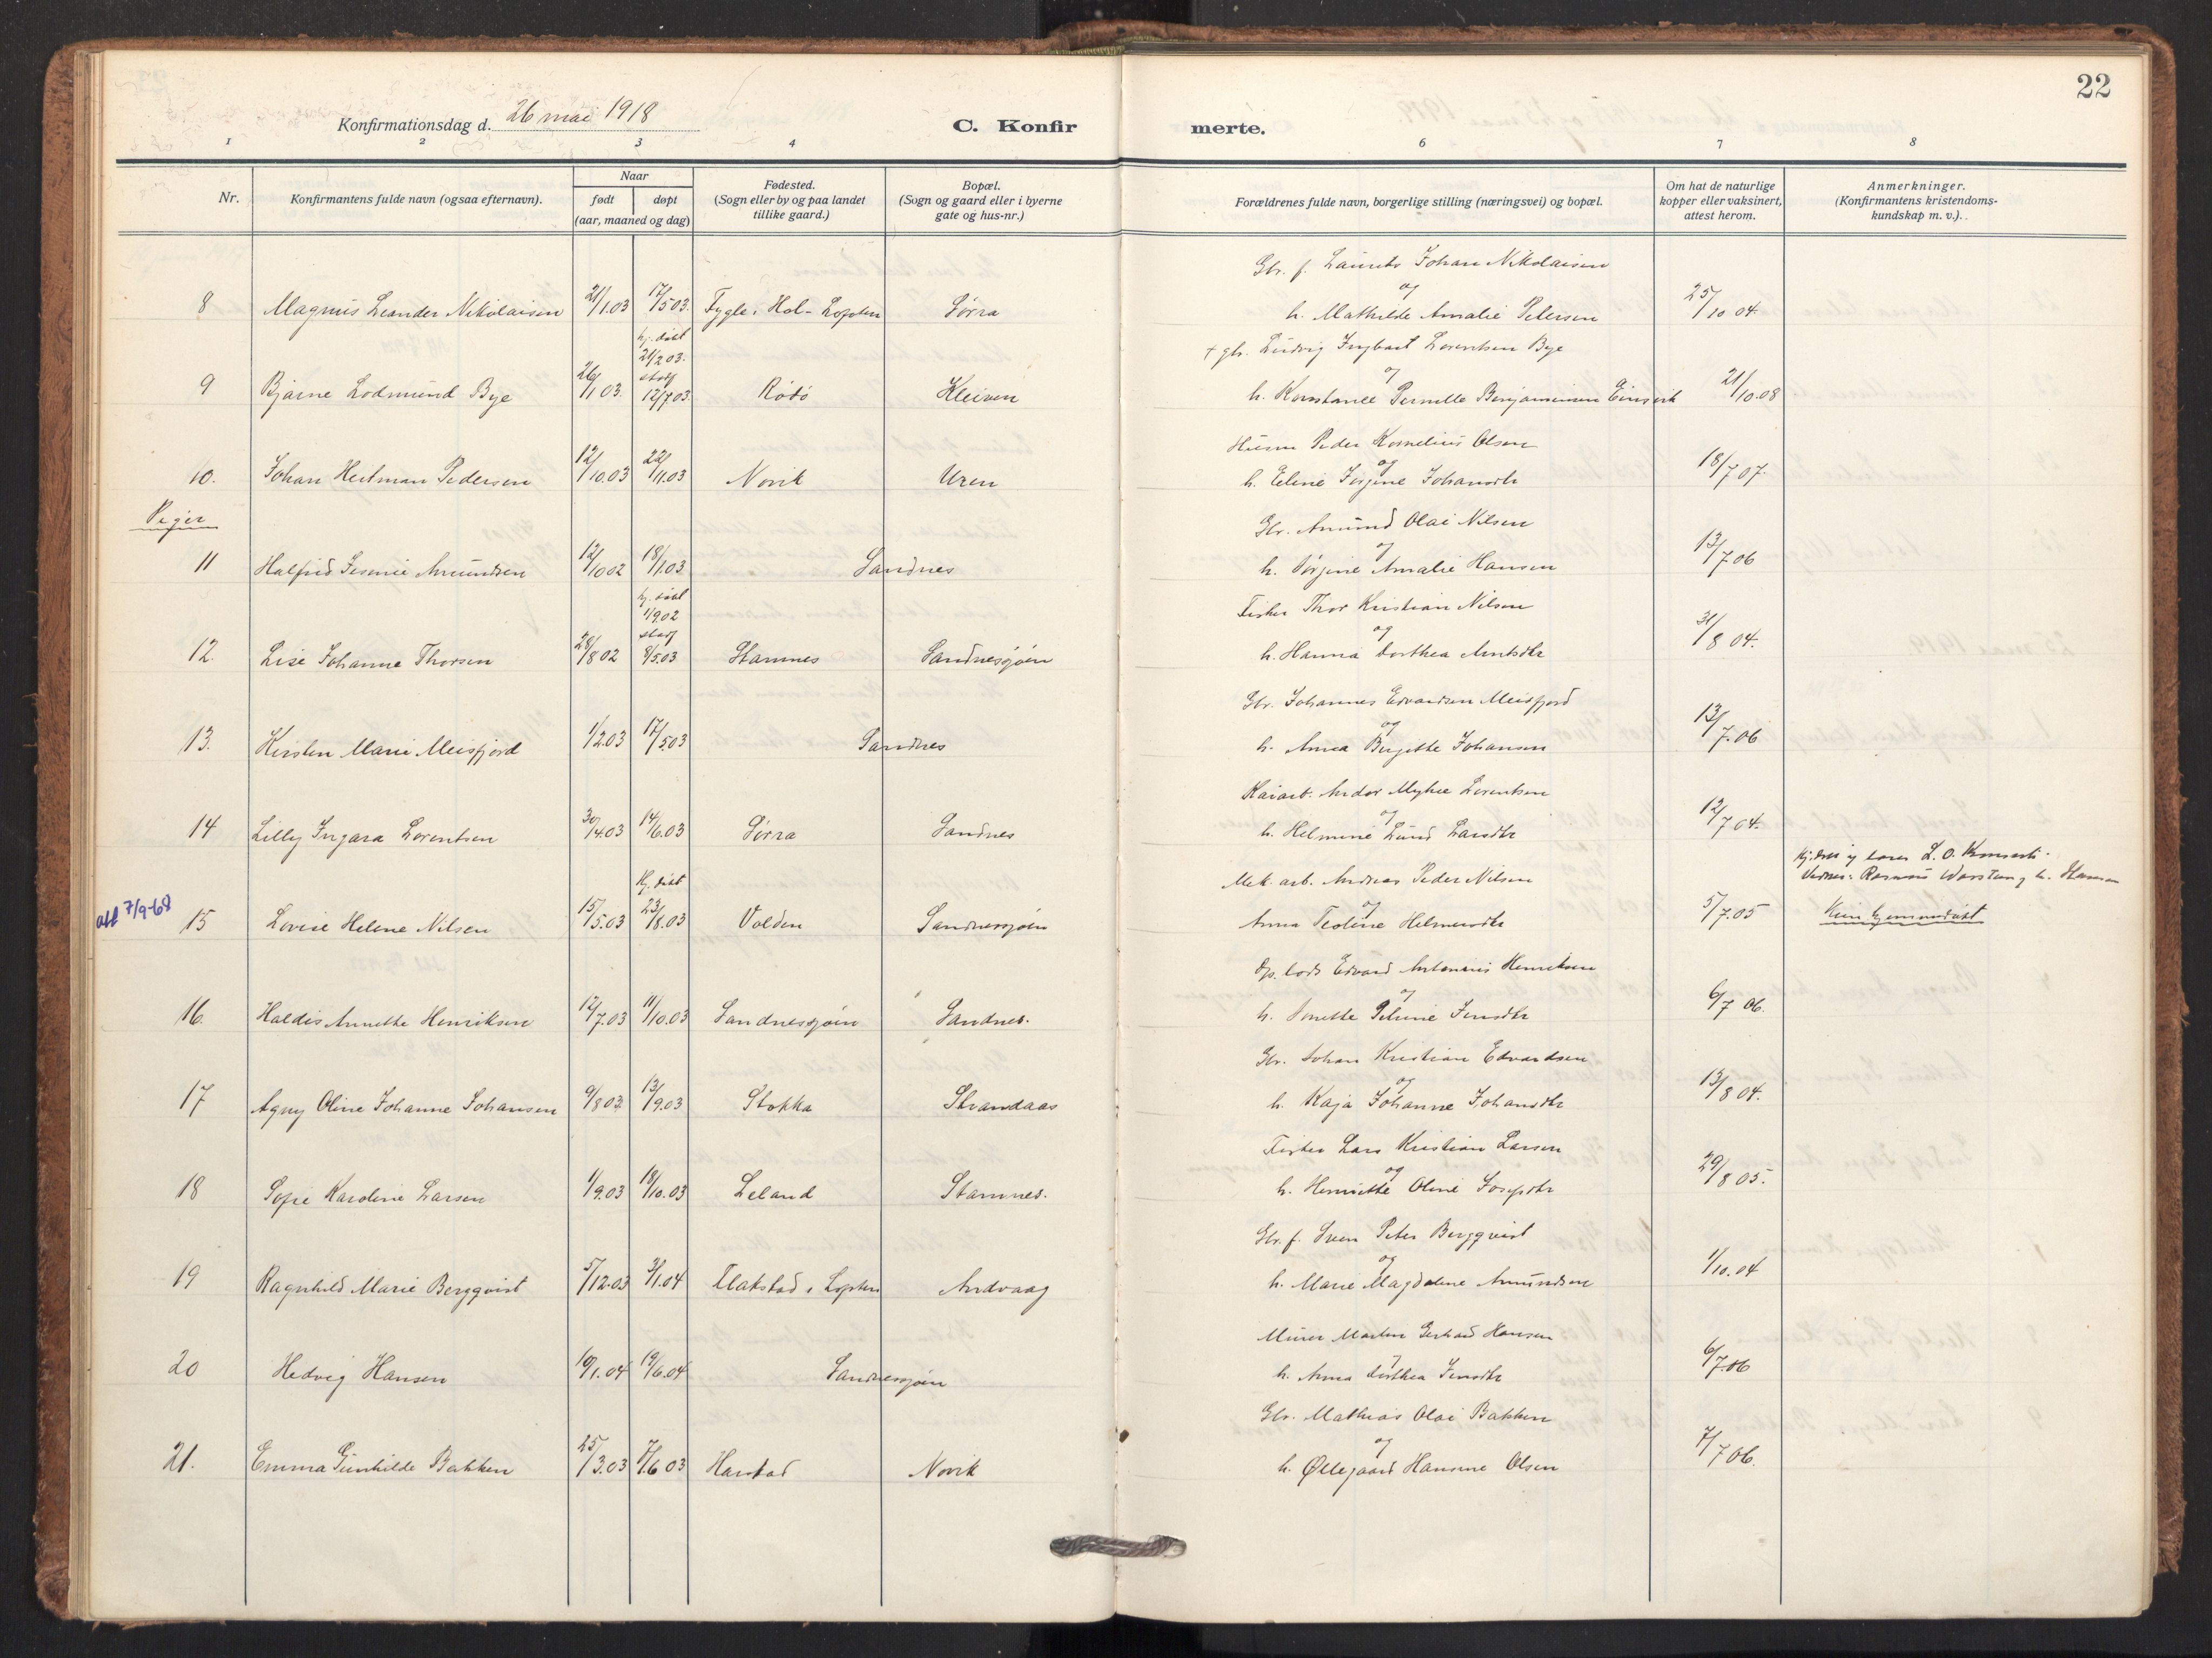 22
Konfirmationsdag d. 26 mai 1918
C. Konfirmerte.
1 2 3 4 6 7 8
Nr.
Konfirmantens fulde navn (ogsaa efternavn).
Naar
født døpt
(aar, maaned og dag)
Fødested.
(Sogn eller by og paa landet
tillike gaard.)
Bopæl.
(Sogn og gaard eller i byerne
gate og hus-nr.)
Forældrenes fulde navn, borgerlige stilling (næringsvei) og bopæl.
Om hat de naturlige
kopper eller vaksinert,
attest herom.
Anmerkninger.
(Konfirmantens kristendoms-
kundskap m. v.).
Gbr. f. Laurits Johan Nikolaisen
og
8 Magnus Leander Nikolaisen 21/1.03 17/5 03. Fygle i Hol - Lofoten Sørra h. Mathilde Amalie Petersen 25/10 04.
hj. døbt
21/2 03.
stadf
† gbr. Ludvig Ingbart Lorentsen Bye
og
9 Bjarne Lodmund Bye 26/1 03. 12/7.03. Rødø Kleiven h. Konstance Pernille Benjaminsen 21/10.08
Husm Peder Kornelius Olsen
og
10. Johan Heitman Pedersen 12/10.03 22/11.03 Novik Uren h. Eline Jørgine Johansdtr 18/7 07.
Piger
Gbr. Amund Olai Nilsen
og
11 Halfrid Jesmie Amundsen 12/10 02 18/1.03 Sandnes h. Jørgine Amalie Hansen 13/7 06
hj. døbt
1/9 02
stadf
Fisker Thor Kristian Nilsen
og
12. Lise Johanne Thorsen 28/8 02 8/5.03 Stamnes Sandnessjøen h. Hanna Dorthea Arntsdtr 31/8 04.
Gbr. Johannes Edvardsen Meisfjord
og
13. Kirsten Marie Meisfjord 1/2.03 17/5.03 Sandnes h. Anna Bergitte Johansen 13/7.06
Kaiarb. Andor Myhre Lorentsen
og
14 Lilly Ingara Lorentsen 30/4.03 14/6.03 Sørra Sandnes h. Helmine Lund Larsdtr 12/7 04.
Hj. døbt
Mek. arb. Andreas Peder Nilsen
og
att 7/9-68
15 Lovise Helene Nilsen 15/5.03 23/8.03 Volden Sandnessjøen Anna Teoline Helmersdtr 5/7.05
Kun hjemmedøbt
Edvard Antonius Henriksen
og
16. Haldis Annette Henriksen 12/7.03 11/10.03 Sandnessjøen Sandnes. h. Jonette Petrine Jensdtr 6/7 06.
Gbr. Johan Kristian Edvardsen
og
17 Agny Oline Johanne Johansen 9/8 03 13/9.03 Stokka Strandaas h. Kaja Johanne Johansdtr 13/8 04.
Fisker Lars Kristian Larsen
og
18 Sofie Karoline Larsen 1/9.03 18/10.03 Leland Stamnes. h. Henriette Oline Josefsdtr 29/8 05.
Gbr. f. Sven Peter Bergqvist
og
19 Ragnhild Marie Bergqvist 5/12.03 3/1.04 Flakstad i Lofoten Andvaag h. Marie Magdalene Amundsen 1/10.04
Murer Martin Gerhard Hansen
og
20 Hedvig Hansen 10/1.04 19/6.04 Sandnessjøen h. Anna Dorthea Jensdtr 6/7.06
Gbr. Mathias Olai Bakken
og
21. Emma Gunhilde Bakken 25/3.03 7/6 03 Harstad Novik h. Øllegaard Hansine Olsen 7/7 06.